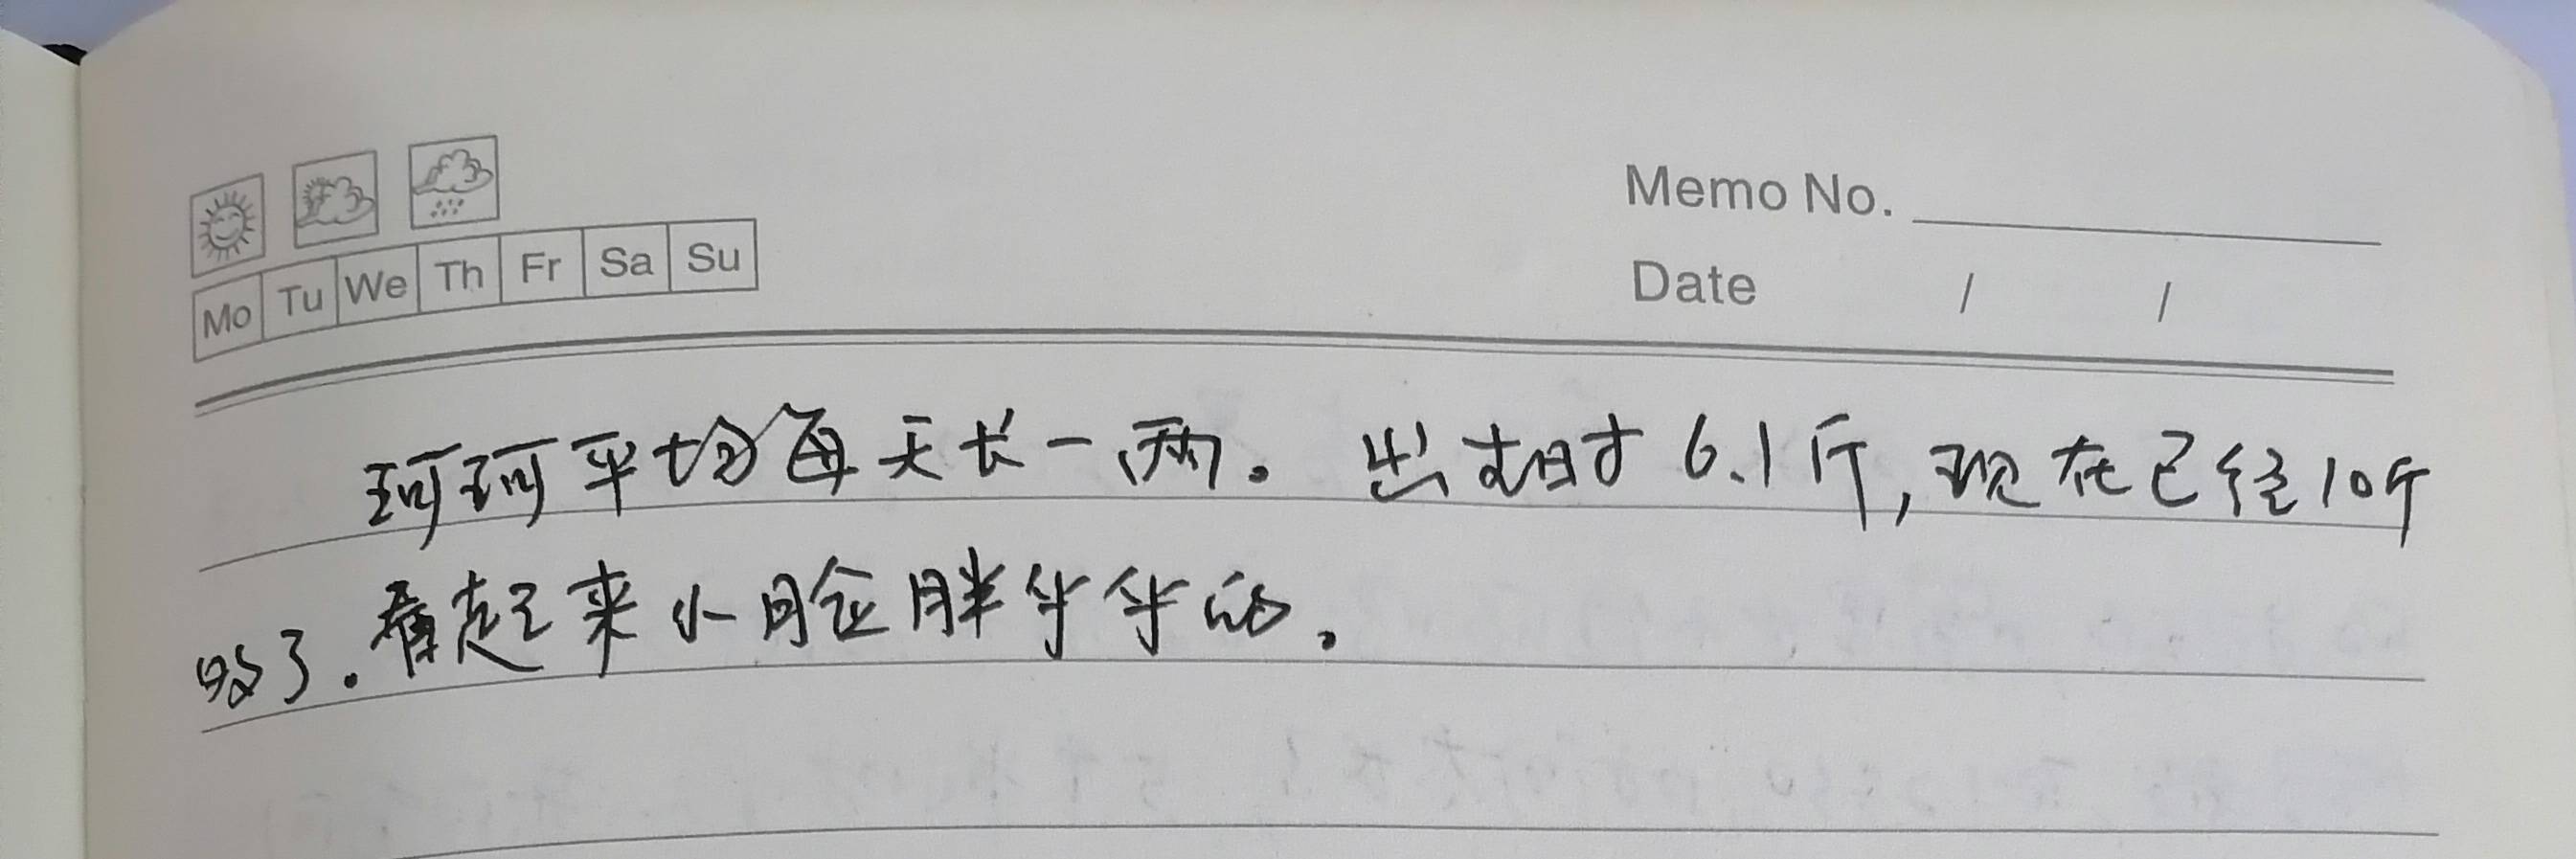 Memo No.
Mo Tu We Th Fr Sa Su
Date / /
珂珂平均每天长一两。出生时6.1斤,现在已经10斤
多了.看起来小脸胖乎乎的.